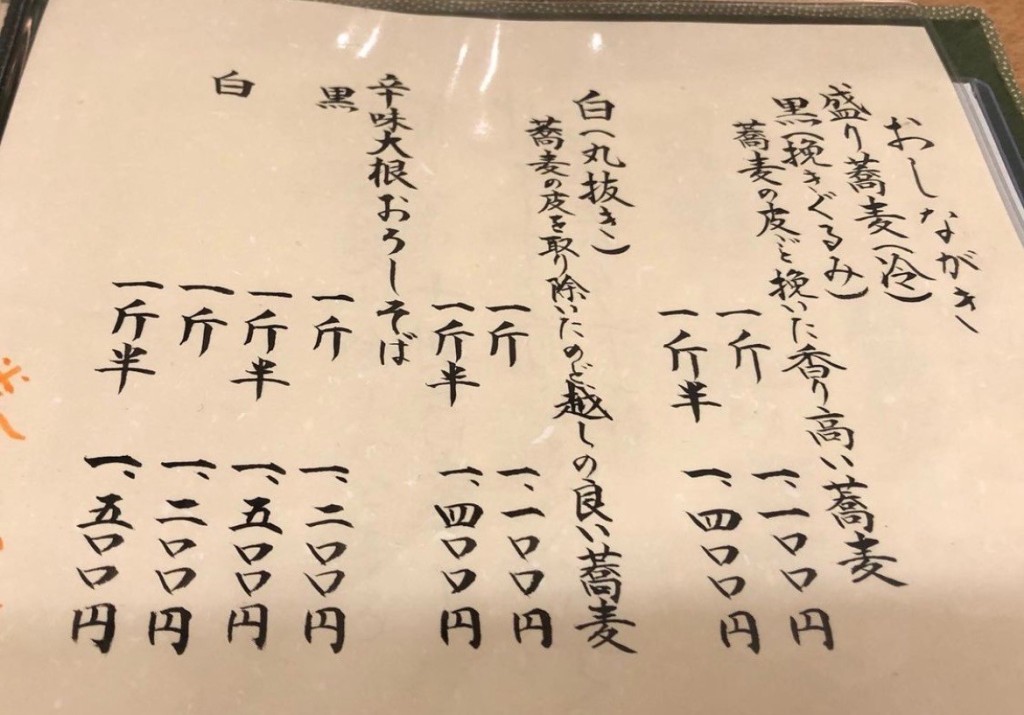 おしながき
盛り蕎麦(冷)
黒(挽きぐるみ)
蕎麦の皮ごと挽いた香り高い蕎麦
一斤 一、一〇〇円
一斤半 一、四〇〇円
白(丸抜き)
蕎麦の皮を取り除いたのど越しの良い蕎麦
一斤 一、一〇〇円
一斤半 一、四〇〇円
辛味大根おろしそば
黒 一斤 一、二〇〇円
一斤半 一、五〇〇円
白 一斤 一、二〇〇円
一斤半 一、五〇〇円